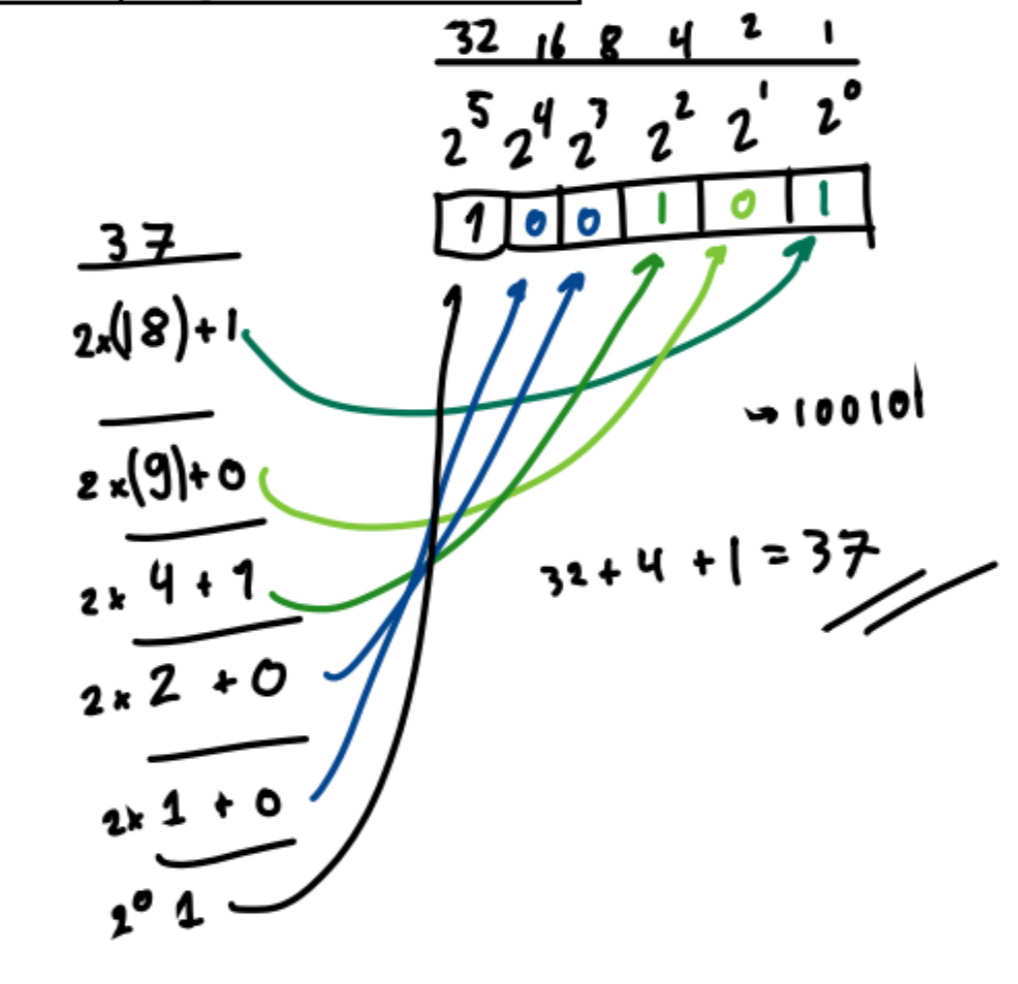 32 16 8 4 2 1
2⁵ 2⁴ 2³ 2² 2¹ 2⁰
1 0 0 1 0 1
37
2×(18)+1
2×(9)+0
2× 4 + 1
2× 2 + 0
2× 1 + 0
2⁰ 1
→ 100101
32 + 4 + 1 = 37